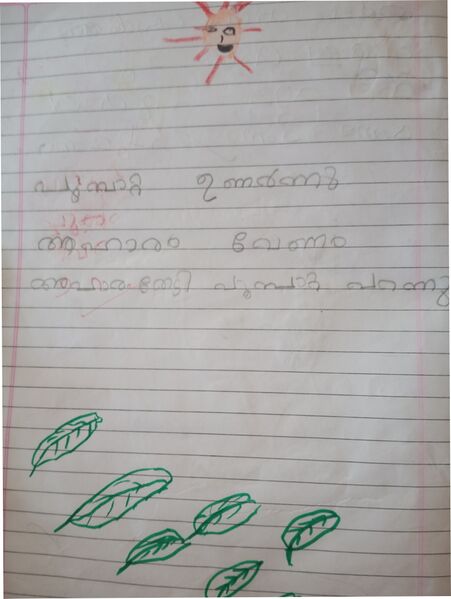 പൂമ്പാറ്റ ഉണർന്നു
ആഹാരം വേണം
ആഹാരംതേടി പൂമ്പാറ്റ പറന്നു